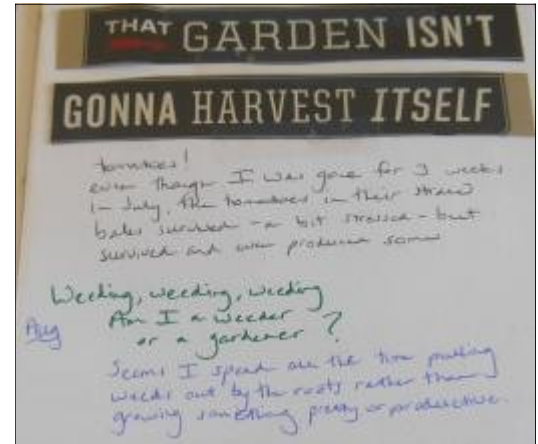 THAT GARDEN ISN'T
GONNA HARVEST ITSELF
tomatoes!
even though I was gone for 3 weeks
in July, the tomatoes in their straw
bales survived - a bit stressed - but
survived and even produced some
Weeding, weeding, weeding
Am I a weeder
or a gardener?
Aug
Seems I spend all the time pulling
weeds out by the roots rather than
growing something pretty or productive.